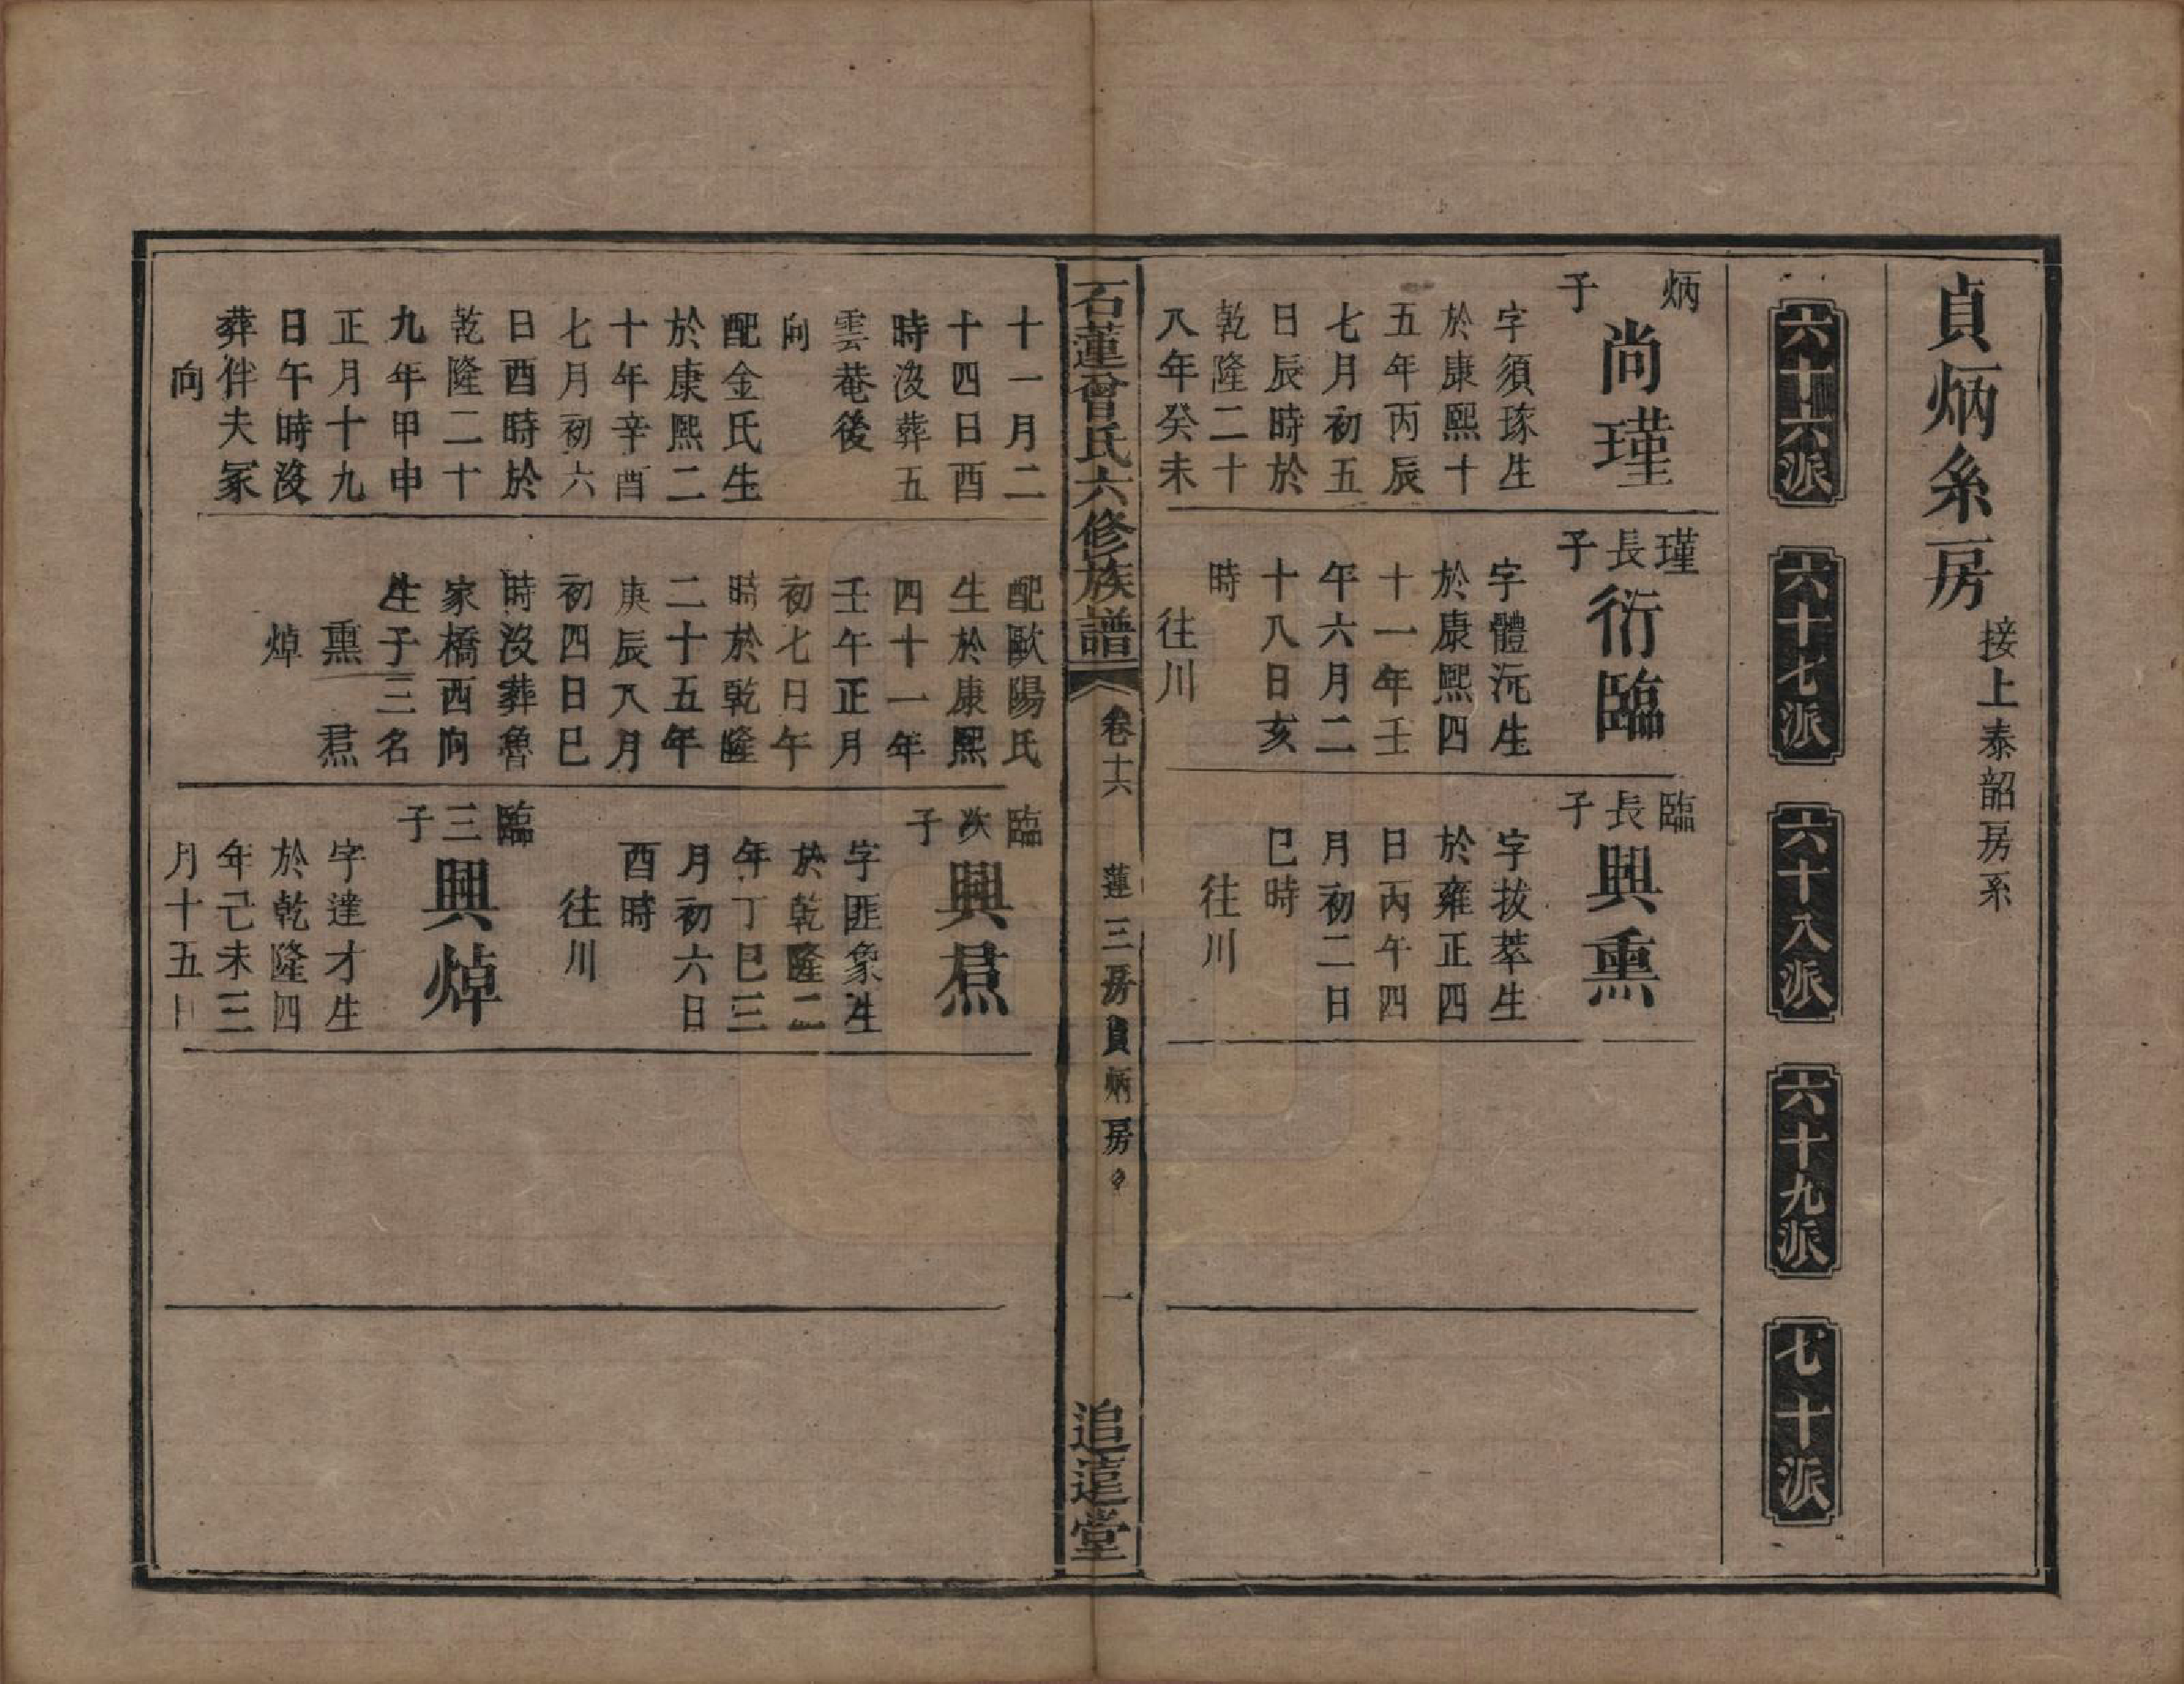 貞炳系房
接上泰韶房系
六十六派
六十七派
六十八派
六十九派
七十派
炳子
尚瑾
字須琢生
於康熙十
五年丙辰
七月初五
日辰時於
乾隆二十
八年癸未
瑾長子
衍臨
字體沅生
於康熙四
十一年壬
午六月二
十八日亥
時
往川
臨長子
興熏
字拔萃生
於雍正四
日丙午四
月初二日
巳時
往川
石蓮曾氏六修族譜
卷十六
蓮三房貞炳房
一
追遠堂
十一月二
十四日酉
時沒葬五
雲菴後
向
配金氏生
於康熙二
十年辛酉
七月初六
日酉時於
乾隆二十
九年甲申
正月十九
日午時沒
葬伴夫冢
向
配歐陽氏
生於康熙
四十一年
壬午正月
初七日午
時於乾隆
二十五年
庚辰八月
初四日巳
時沒葬魯
家橋西向
生子三名
熏 焄
焯
臨次子
興焄
字匪象生
於乾隆二
年丁巳三
月初六日
酉時
往川
臨三子
興焯
字達才生
於乾隆四
年己未三
月十五日